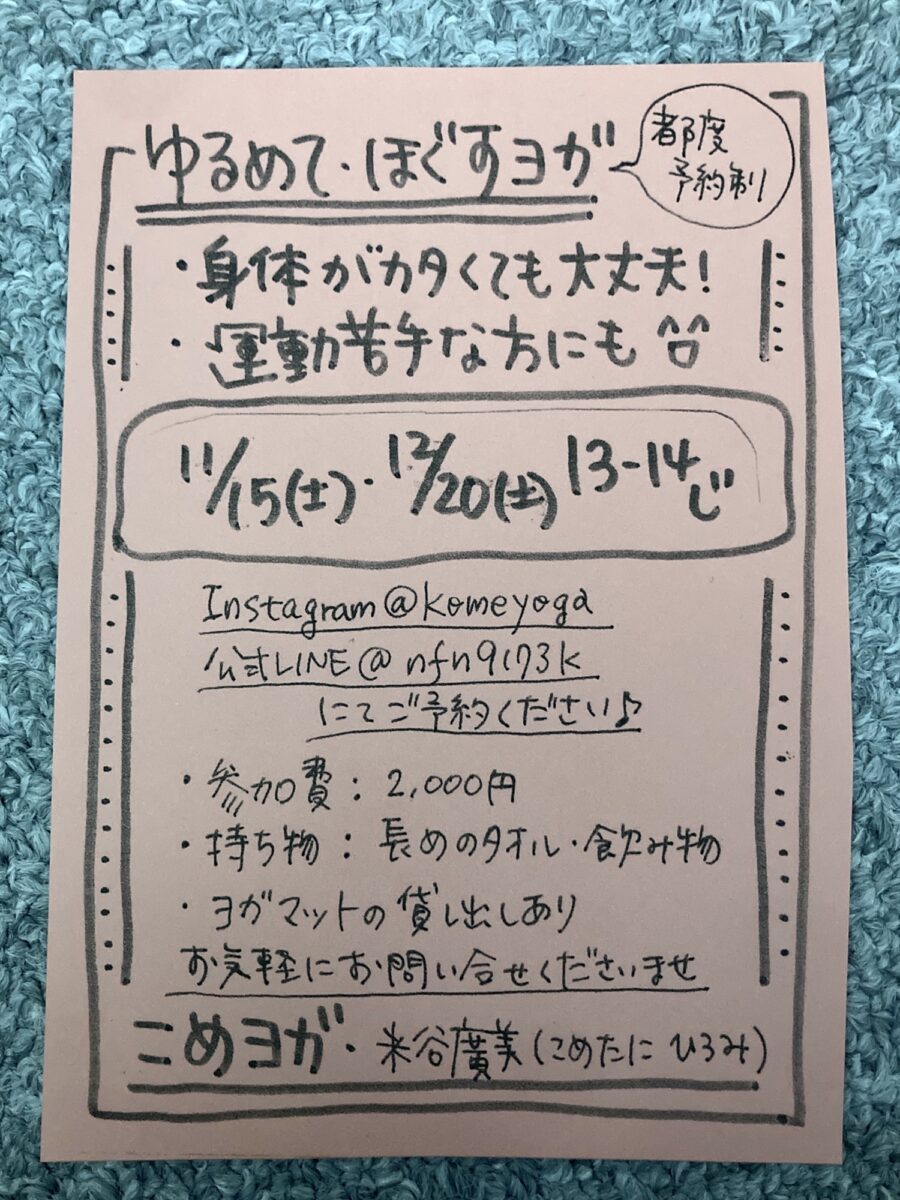 ゆるめて・ほぐすヨガ
都度
予約制
・身体がカタくても大丈夫!
・運動苦手な方にも
11/15(土)・12/20(土) 13-14じ
Instagram@komeyoga
公式LINE@nfn9173k
にてご予約ください♪
・参加費:2,000円
・持ち物:長めのタオル・飲み物
・ヨガマットの貸し出しあり
お気軽にお問い合せくださいませ
こめヨガ・米谷廣美(こめたに ひろみ)